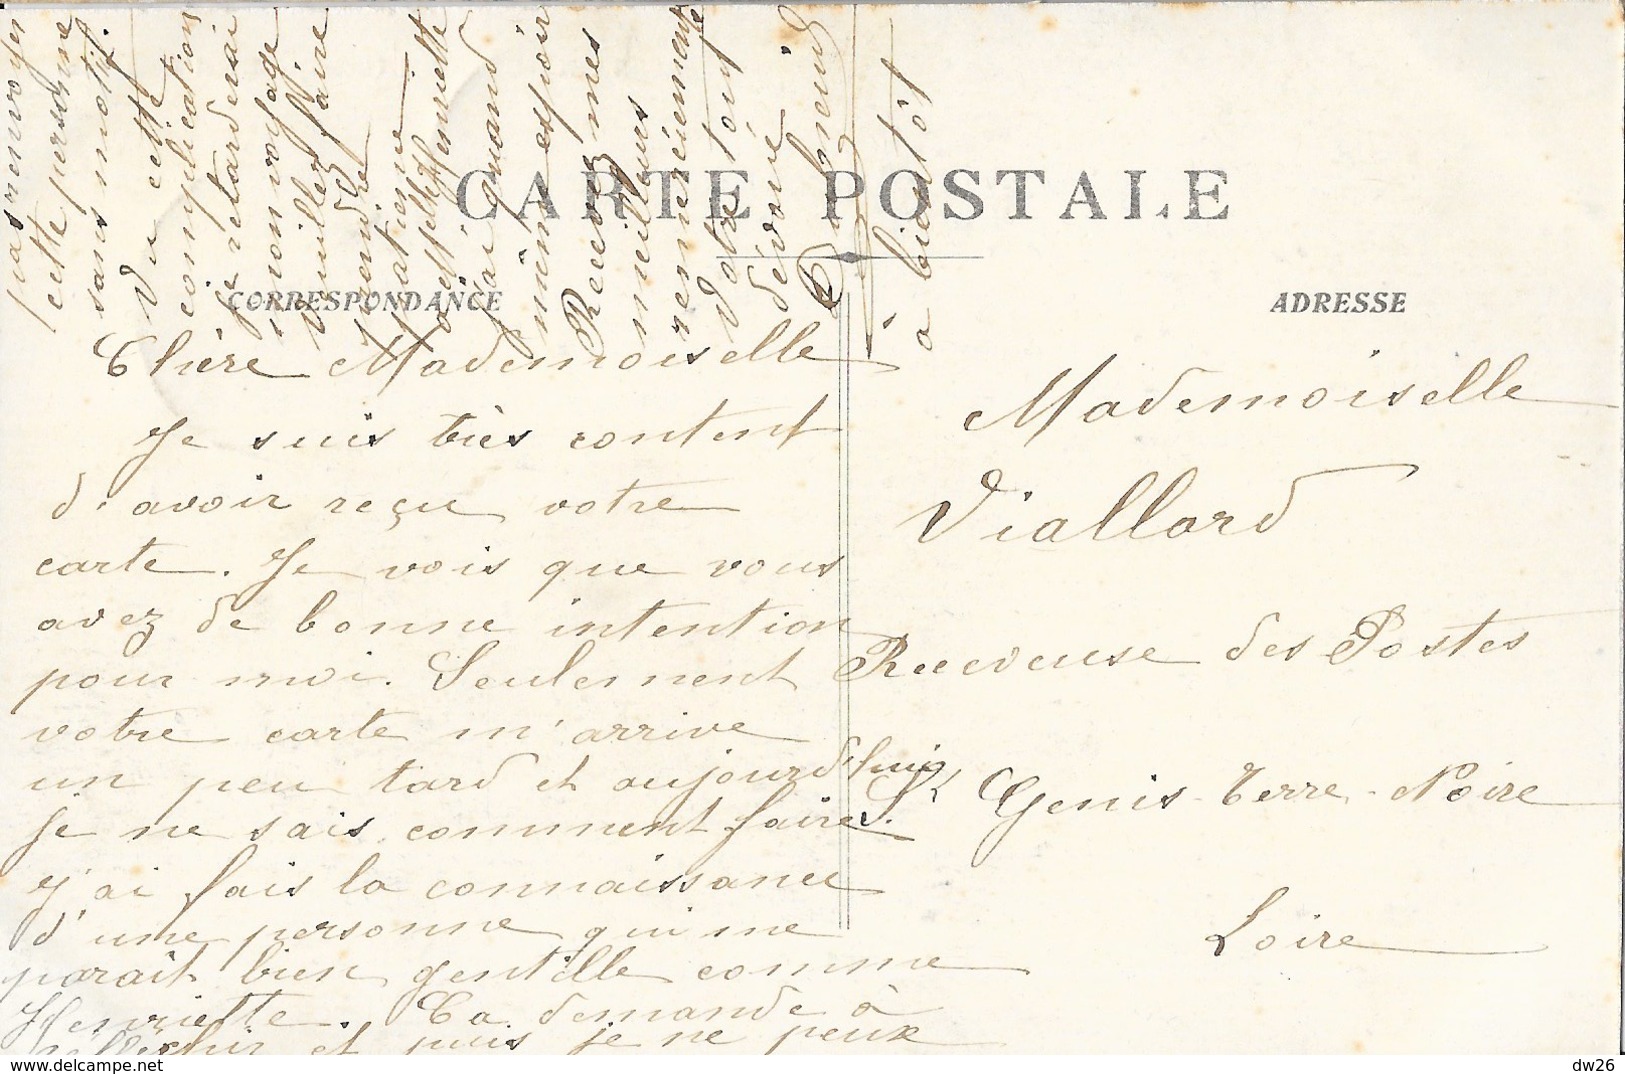 CARTE POSTALE
CORRESPONDANCE
ADRESSE
Chère Mademoiselle
Je suis très content
d'avoir reçu votre
carte. Je vois que vous
avez de bonne intention
pour moi. Seulement
votre carte m'arrive
un peu tard et aujourd'hui
je ne sais comment faire.
j'ai fais la connaissance
d'une personne qui me
parait bien gentille comme
Henriette. Ca demande à
réfléchir et puis je ne peux
pas renvoyer
cette personne
sans motif.
Vu cette
complication
je retarderai
mon voyage
Veuillez faire
prendre
patience
à Henriette
j'ai quand
même espoir
Recevez mes
meilleurs
remerciements
Votre tout
dévoué
à bientôt
Mademoiselle
Viallard
Receveuse des Postes
St Genis-Terre-Noire
Loire
dw26